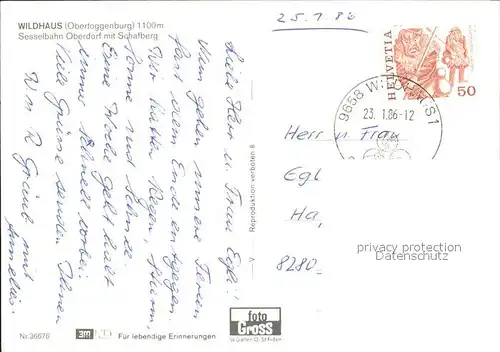 WILDHAUS (Obertoggenburg) 1100m
Sesselbahn Oberdorf mit Schafberg
25.1.86
HELVETIA
50
9658 WILDHAUS 1
23.1.86-12
Liebe Herr u. Frau Egli!
Nun gehen unsere Ferien
fast dem Ende entgegen.
Wir hatten Regen, Sturm,
Sonne und
Eine Woche geht halt
schnell vorbei.
Viele Grüsse senden Ihnen
W u R Graub mit
Annelies.
Herr u Frau
Egl
Ha,
8280
privacy protection
Datenschutz
Reproduktion verboten
foto
Gross
St.Gallen O, St.Fiden
Nr.36676
3M
Für lebendige Erinnerungen